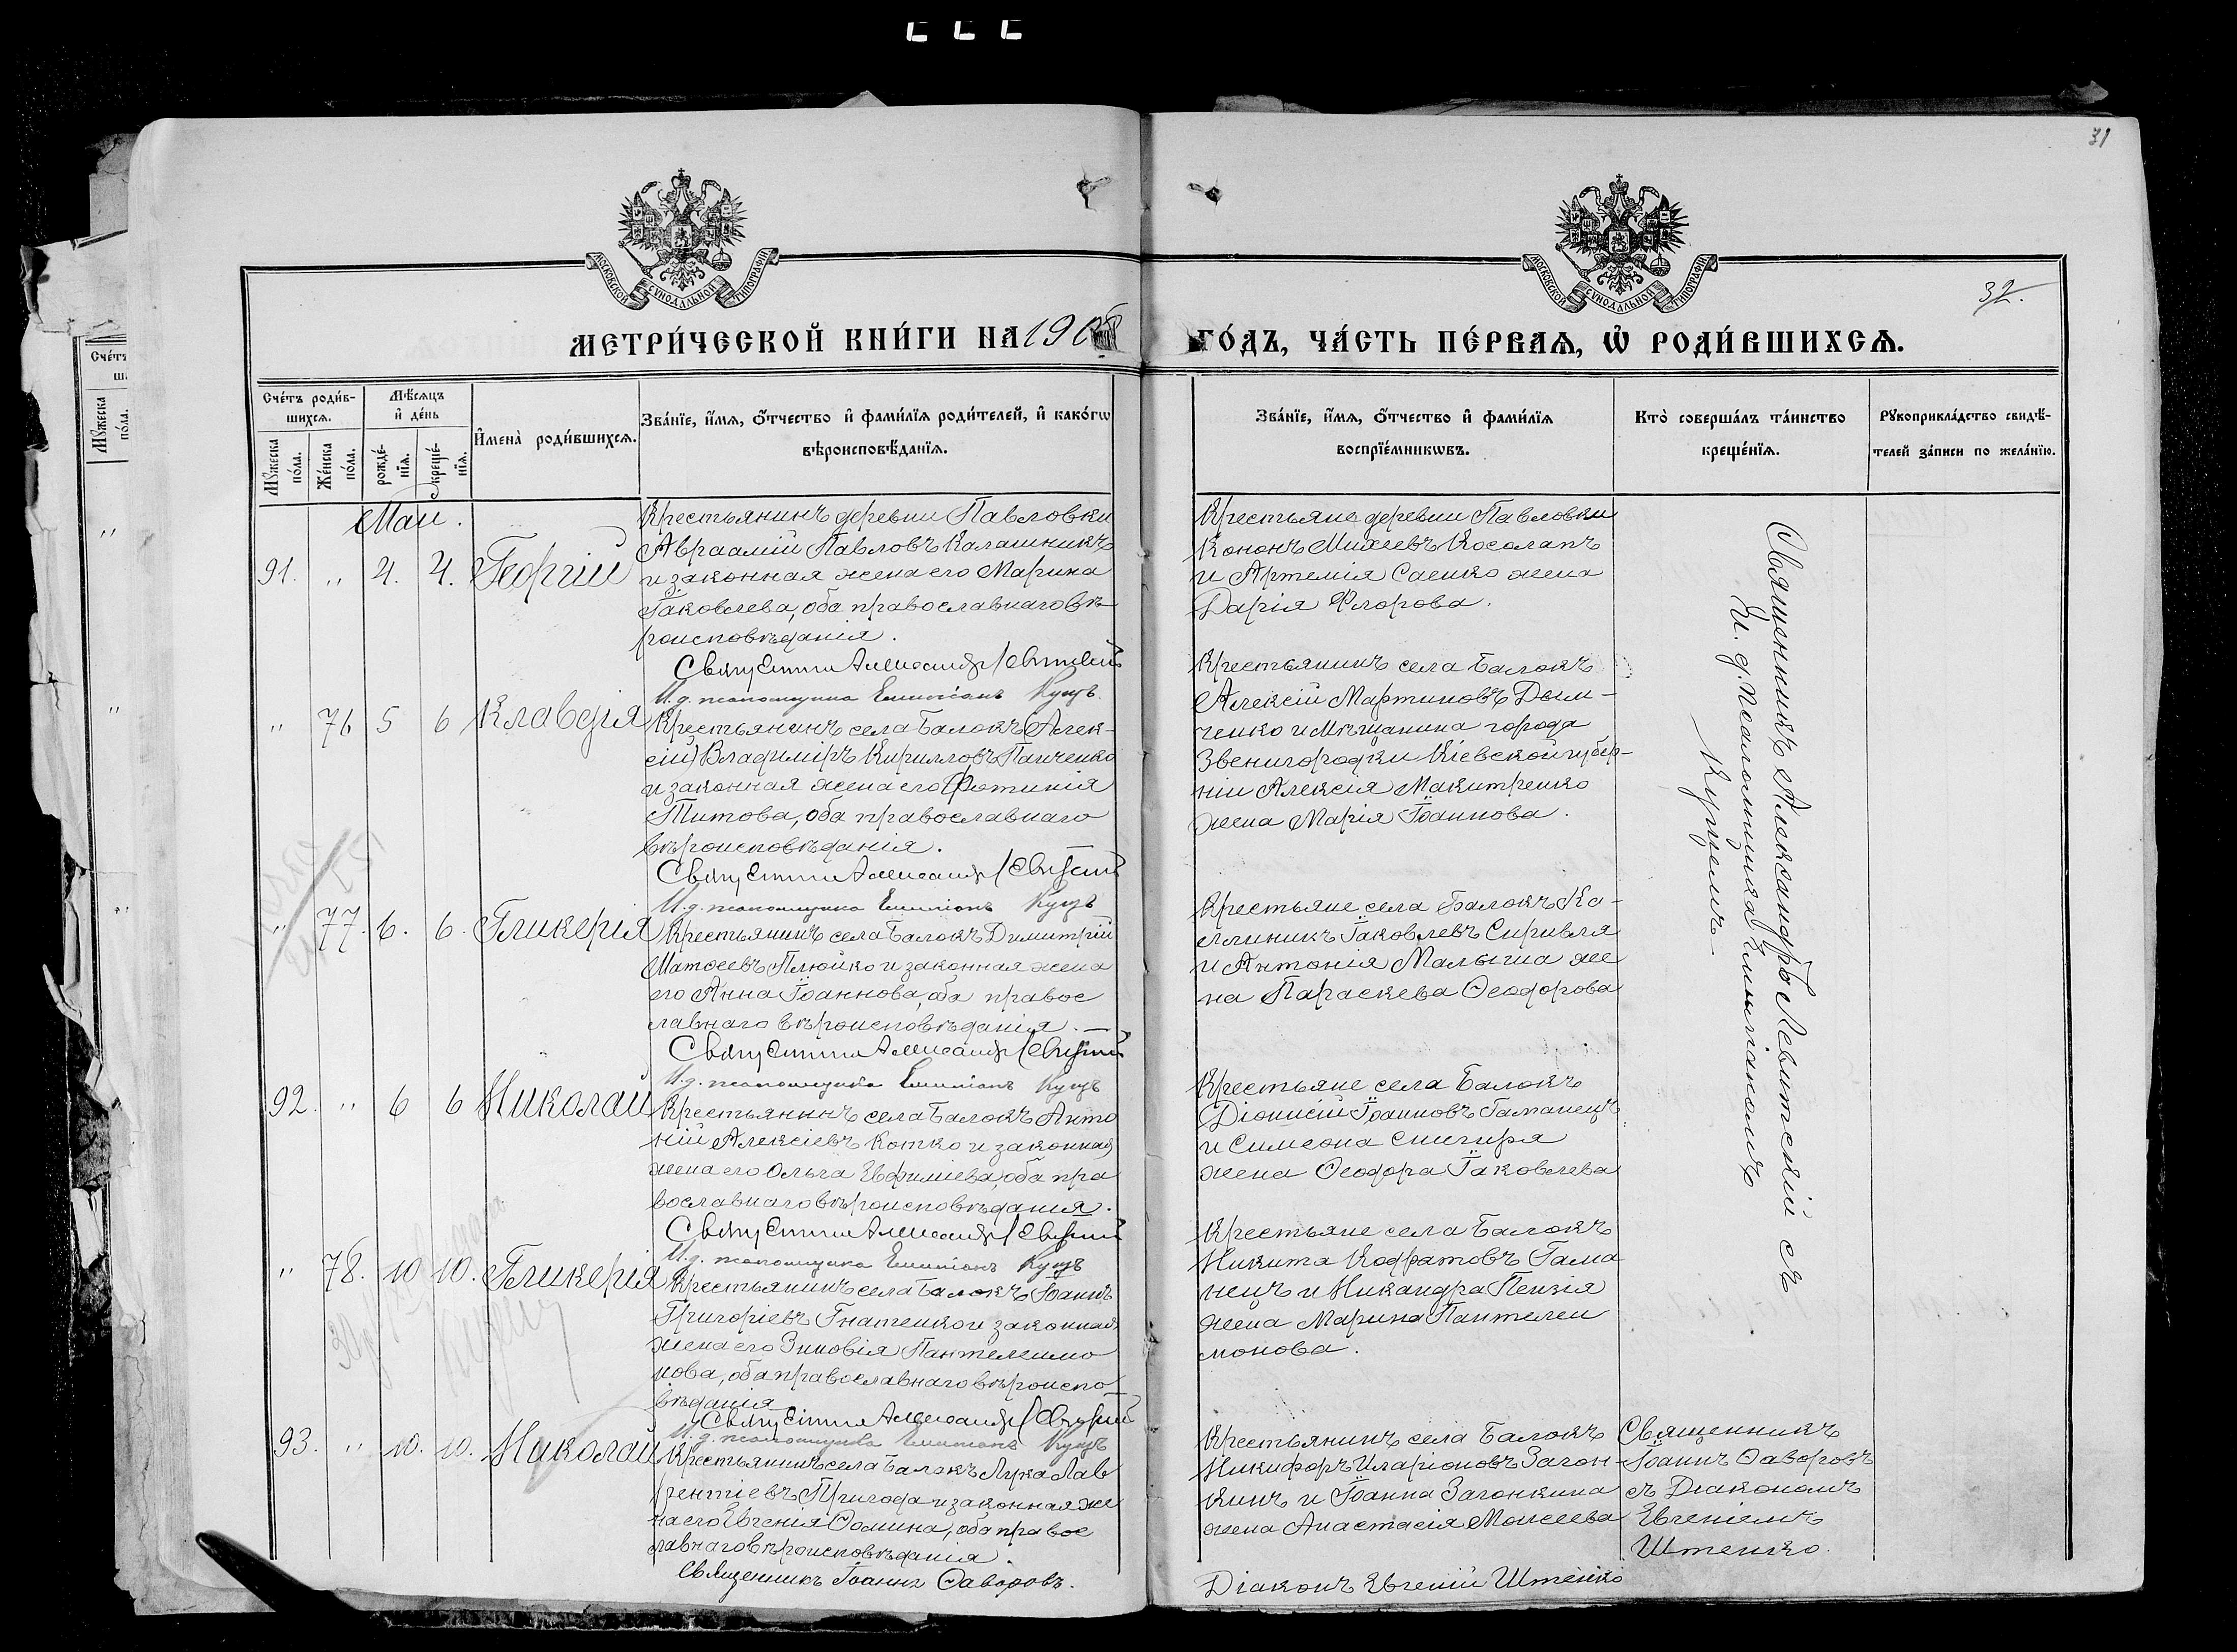 31
МОСКОВСКОЙ СѴНОДАЛЬНОЙ ТИПОГРАФІИ
МОСКОВСКОЙ СѴНОДАЛЬНОЙ ТИПОГРАФІИ
32.
МЕТРИ́ЧЕСКОЙ КНИ́ГИ НА 190
ГО́ДЪ, ЧА́СТЬ ПЕ́РВАЯ, Ѡ҆ РОДИ́ВШИХСЯ.
Сче́тъ роди́в-
шихся.
Мꙋ́жеска по́ла.
Же́нска по́ла.
Мѣ́сяцъ
и҆ де́нь
рожде́-
нїя.
креще́-
нїя.
И҆мена̀ роди́вшихся.
Зва́нїе, и҆́мя, ѻ҆́тчество и҆ фами́лїя роди́телей, и҆ како́гѡ
вѣроисповѣ́данїя.
Зва́нїе, и҆́мя, ѻ҆́тчество и҆ фами́лїя
воспрїе́мникѡвъ.
Кто̀ соверша́лъ та́инство
креще́нїя.
Рꙋкоприкла́дство свидѣ́-
телей за́писи по жела́нїю.
Май.
91. " 4. 4. Георгій
Крестьянинъ деревни Павловки
Авраамій Павловъ Калашникъ
и законная жена его Марина
Іаковлева, оба православнаго вѣ-
роисповѣданія.
Священникъ Александръ Левитскій
И.д. псаломщика Емиліанъ Куцъ
Крестьяне деревни Павловки
Кононъ Михеевъ Косолапъ
и Артемія Саенко жена
Дарія Флорова.
" 76 5 6 Клавдія
Крестьянинъ села Балокъ (Алек-
сій) Владиміръ Кирилловъ Панченко
и законная жена его Фотинія
Титова, оба православнаго
вѣроисповѣданія.
Священникъ Александръ Левитскій
И.д. псаломщика Емиліанъ Куцъ
Крестьянинъ села Балокъ
Алексій Мартиновъ Дым-
ченко и Мѣщанина города
Звенигородки Кіевской губер-
ніи Алексія Макитренко
жена Марія Іоаннова.
" 77. 6. 6. Гликерія
Крестьянинъ села Балокъ Димитрій
Матѳеевъ Плюйко и законная жена
его Анна Іоаннова, оба правос
лавнаго вѣроисповѣданія.
Священникъ Александръ Левитскій
И.д. псаломщика Емиліанъ Куцъ
Крестьяне села Балокъ Ка-
ллиникъ Іаковлевъ Сиривля
и Антонія Малыша же
на Параскева Ѳеодорова
92. " 6 6 Николай
Крестьянинъ села Балокъ Анто
ній Алексіевъ Котко и законная
жена его Ольга Евфиміева, оба пра
вославнаго вѣроисповѣданія.
Священникъ Александръ Левитскій
И.д. псаломщика Емиліанъ Куцъ
Крестьяне села Балокъ
Діонисій Іоанновъ Гаманецъ
и Симеона Снигиря
жена Ѳеодора Іаковлева
" 78. 10 10. Гликерія
Крестьянинъ села Балокъ Іоаннъ
Григоріевъ Гнатенко и законная
жена его Зиновія Пантелеимо
нова, оба православнаго вѣроиспо
вѣданія
Священникъ Александръ Левитскій
И.д. псаломщика Емиліанъ Куцъ
Крестьяне села Балокъ
Никита Кодратовъ Гама
нецъ и Никандра Пензія
жена Марина Пантелеи
монова.
93. " 10. 10. Николай
Крестьянинъ села Балокъ Лука Лав
рентіевъ Пригода и законная же
на его Евгенія Ѳомина, оба правос
лавнаго вѣроисповѣданія.
Священникъ Іоаннъ Ѳаворовъ.
Крестьянинъ села Балокъ
Никифоръ Иларіоновъ Загон-
кинъ и Іоанна Загонкина
жена Анастасія Моисеева
Діаконъ Евгеній Штенко
Священникъ Александръ Левитскій съ
И. д. псаломщика Емиліаномъ
Куцемъ
Священникъ
Іоаннъ Ѳаворовъ
съ Діакономъ
Евгеніемъ
Штенко.